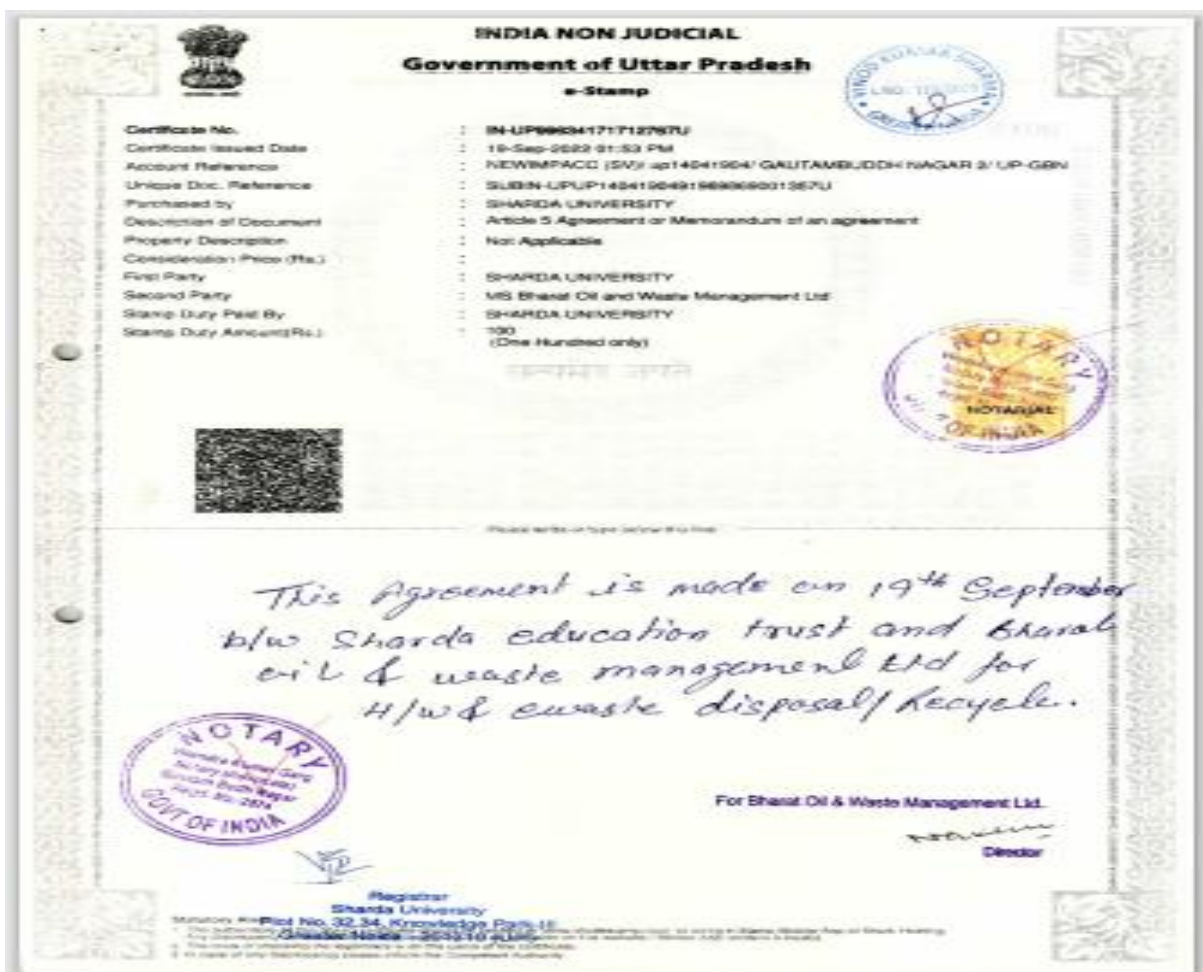 INDIA NON JUDICIAL
Government of Uttar Pradesh
e-Stamp
VINOD KUMAR SHARMA
Certificate No. :
Certificate Issued Date : 19-Sep-2022 01:53 PM
Account Reference : NEWIMPACC (SV)/ up14041904/ GAUTAMBUDDH NAGAR 2/ UP-GBN
Unique Doc. Reference :
Purchased by : SHARDA UNIVERSITY
Description of Document : Article 5 Agreement or Memorandum of an agreement
Property Description : Not Applicable
Consideration Price (Rs.) :
First Party : SHARDA UNIVERSITY
Second Party : MS Bharat Oil and Waste Management Ltd
Stamp Duty Paid By : SHARDA UNIVERSITY
Stamp Duty Amount(Rs.) : 100
(One Hundred only)
सत्यमेव जयते
NOTARY
NOTARIAL
OF INDIA
This Agreement is made on 19th September
b/w Sharda education trust and Bharat
oil & waste management Ltd for
H/w & ewaste disposal/Recycle.
NOTARY
GOVT OF INDIA
For Bharat Oil & Waste Management Ltd.
Director
Registrar
Sharda University
Plot No. 32,34, Knowledge Park-III
Greater Noida